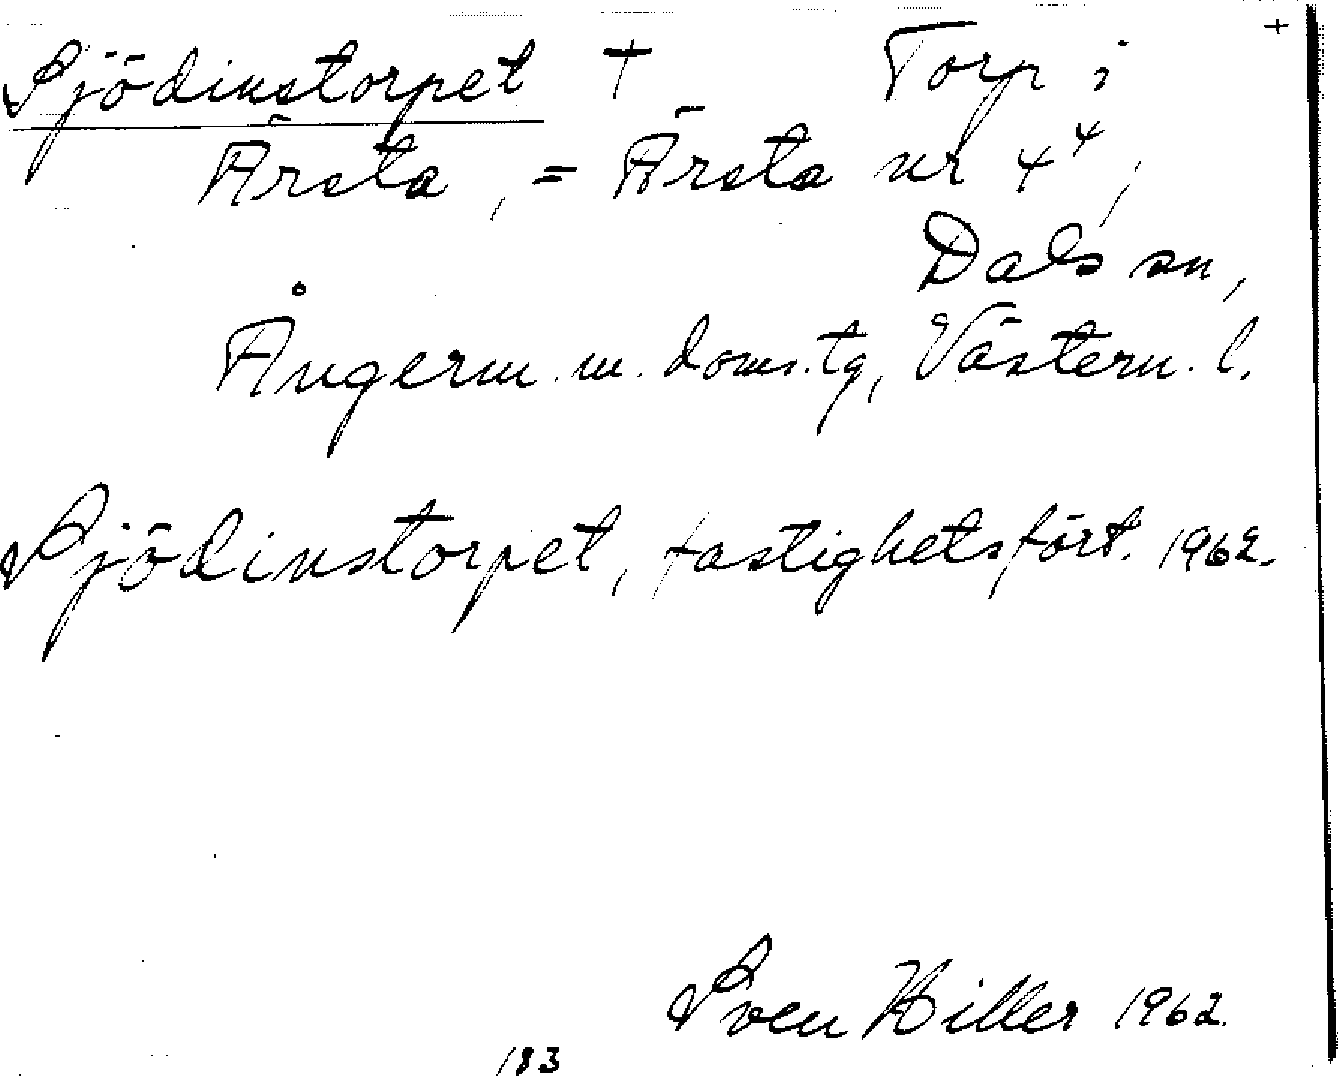 +
Sjödinstorpet † Torp i
Ärsta, = Ärsta nr 4⁴,
Dals sn,
Ångerm. m. doms. tg, Västern. l.
Sjödinstorpet, fastighetsfört. 1962.
Sven Hiller 1962.
183